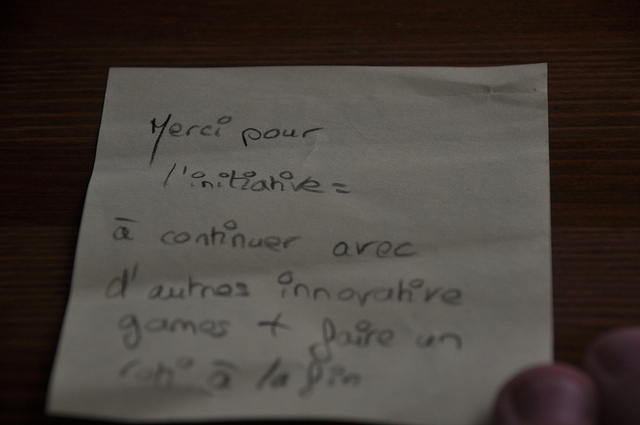 Merci pour
l'initiative =
à continuer avec
d'autres innovative
games + faire un
à la fin